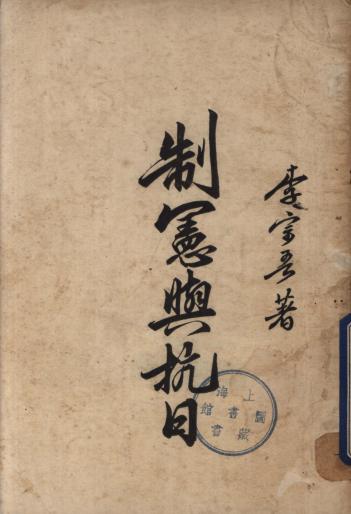 李宗吾著
制憲與抗日
上海圖書館藏書